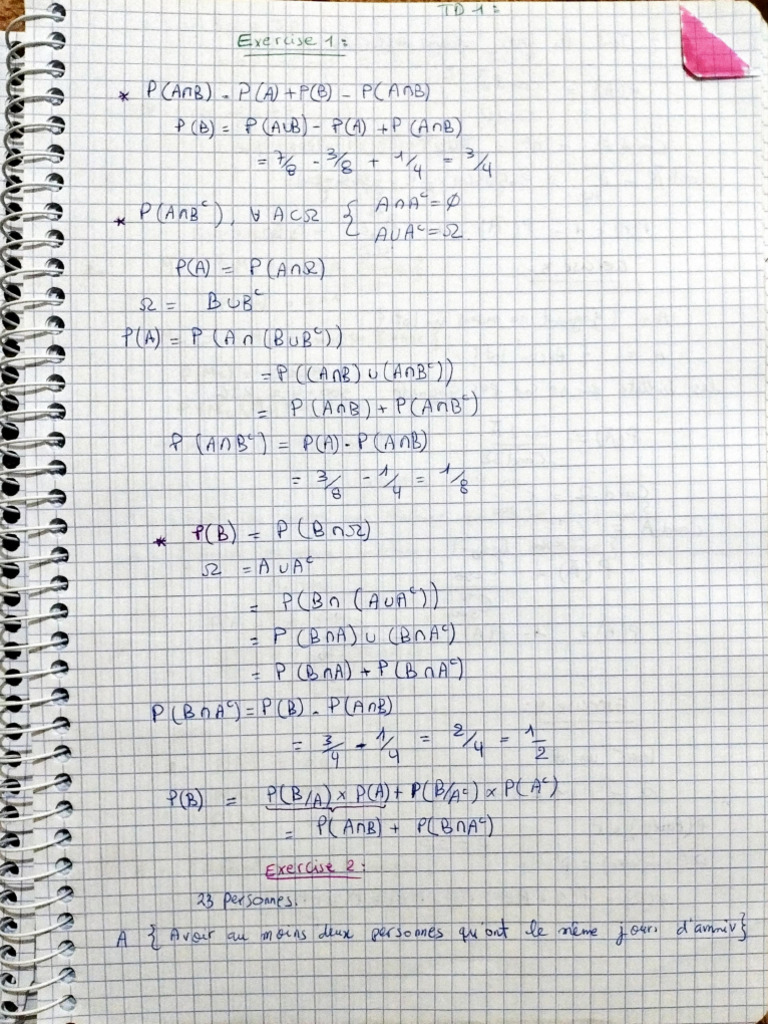 TD 1 :
Exercise 1 :
* P(A∩B) = P(A) + P(B) - P(A∩B)
P(B) = P(A∪B) - P(A) + P(A∩B)
= 7/8 - 3/8 + 1/4 = 3/4
* P(A∩Bᶜ), ∀ A⊂Ω { A∩Aᶜ = ∅
A∪Aᶜ = Ω
P(A) = P(A∩Ω)
Ω = B∪Bᶜ
P(A) = P(A∩(B∪Bᶜ))
= P((A∩B) ∪ (A∩Bᶜ))
= P(A∩B) + P(A∩Bᶜ)
P(A∩Bᶜ) = P(A) - P(A∩B)
= 3/8 - 1/4 = 1/8
* P(B) = P(B∩Ω)
Ω = A∪Aᶜ
= P(B∩(A∪Aᶜ))
= P(B∩A) ∪ (B∩Aᶜ)
= P(B∩A) + P(B∩Aᶜ)
P(B∩Aᶜ) = P(B) - P(A∩B)
= 3/4 - 1/4 = 2/4 = 1/2
P(B) = P(B/A) × P(A) + P(B/Aᶜ) × P(Aᶜ)
= P(A∩B) + P(B∩Aᶜ)
Exercise 2 :
23 personnes.
A { Avoir au moins deux personnes qu'ont le même jour d'anniv}